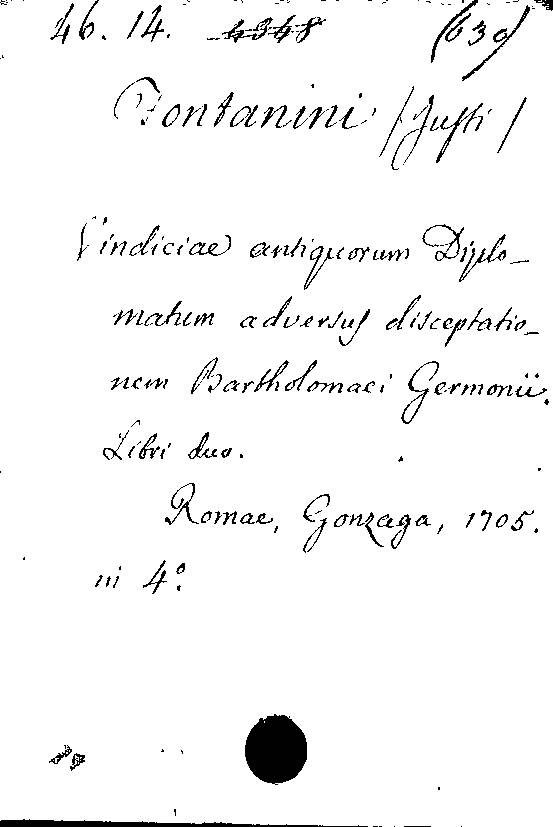 46. 14. 4348 (639)
Fontanini /Justi/
Vindiciae antiquorum Diplo-
matum adversus disceptatio-
nem Bartholomaei Germonii.
Libri duo.
Romae, Gonzaga, 1705.
in 4º